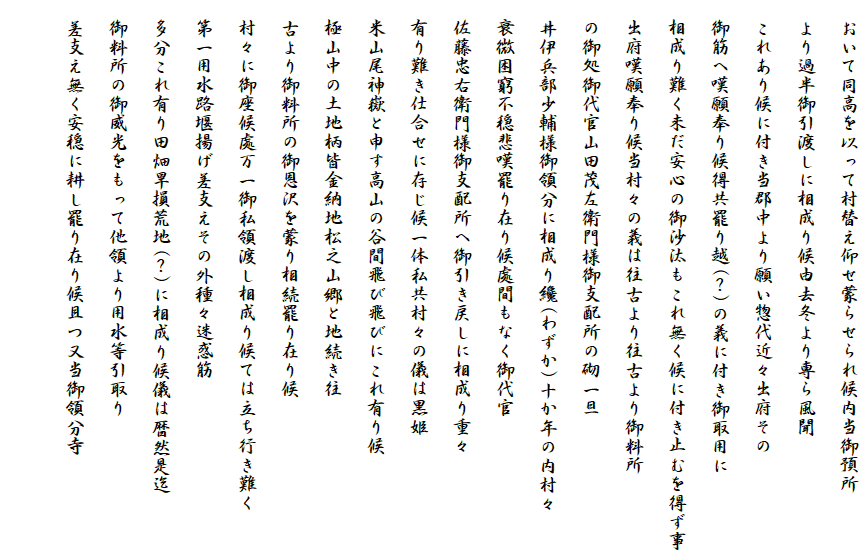 おいて同高を以って村替え仰せ蒙らせられ候内当御預所
より過半御引渡しに相成り候由去冬より専ら風聞
これあり候に付き当郡中より願い惣代近々出府その
御筋へ嘆願奉り候得共罷り越(？)の義に付き御取用に
相成り難く未だ安心の御沙汰もこれ無く候に付き止むを得ず事
出府嘆願奉り候当村々の義は往古より往古より御料所
の御処御代官山田茂左衛門様御支配所の砌一旦
井伊兵部少輔様御領分に相成り纔(わずか)十か年の内村々
衰微困窮不穏悲嘆罷り在り候處間もなく御代官
佐藤忠右衛門様御支配所へ御引き戻しに相成り重々
有り難き仕合せに存じ候一体私共村々の儀は黒姫
米山尾神嶽と申す高山の谷間飛び飛びにこれ有り候
極山中の土地柄皆金納地松之山郷と地続き往
古より御料所の御恩沢を蒙り相続罷り在り候
村々に御座候處万一御私領渡し相成り候ては立ち行き難く
第一用水路堰揚げ差支えその外種々迷惑筋
多分これ有り田畑旱損荒地(？)に相成り候儀は暦然是迄
御料所の御威光をもって他領より用水等引取り
差支え無く安穏に耕し罷り在り候且つ又当御領分寺